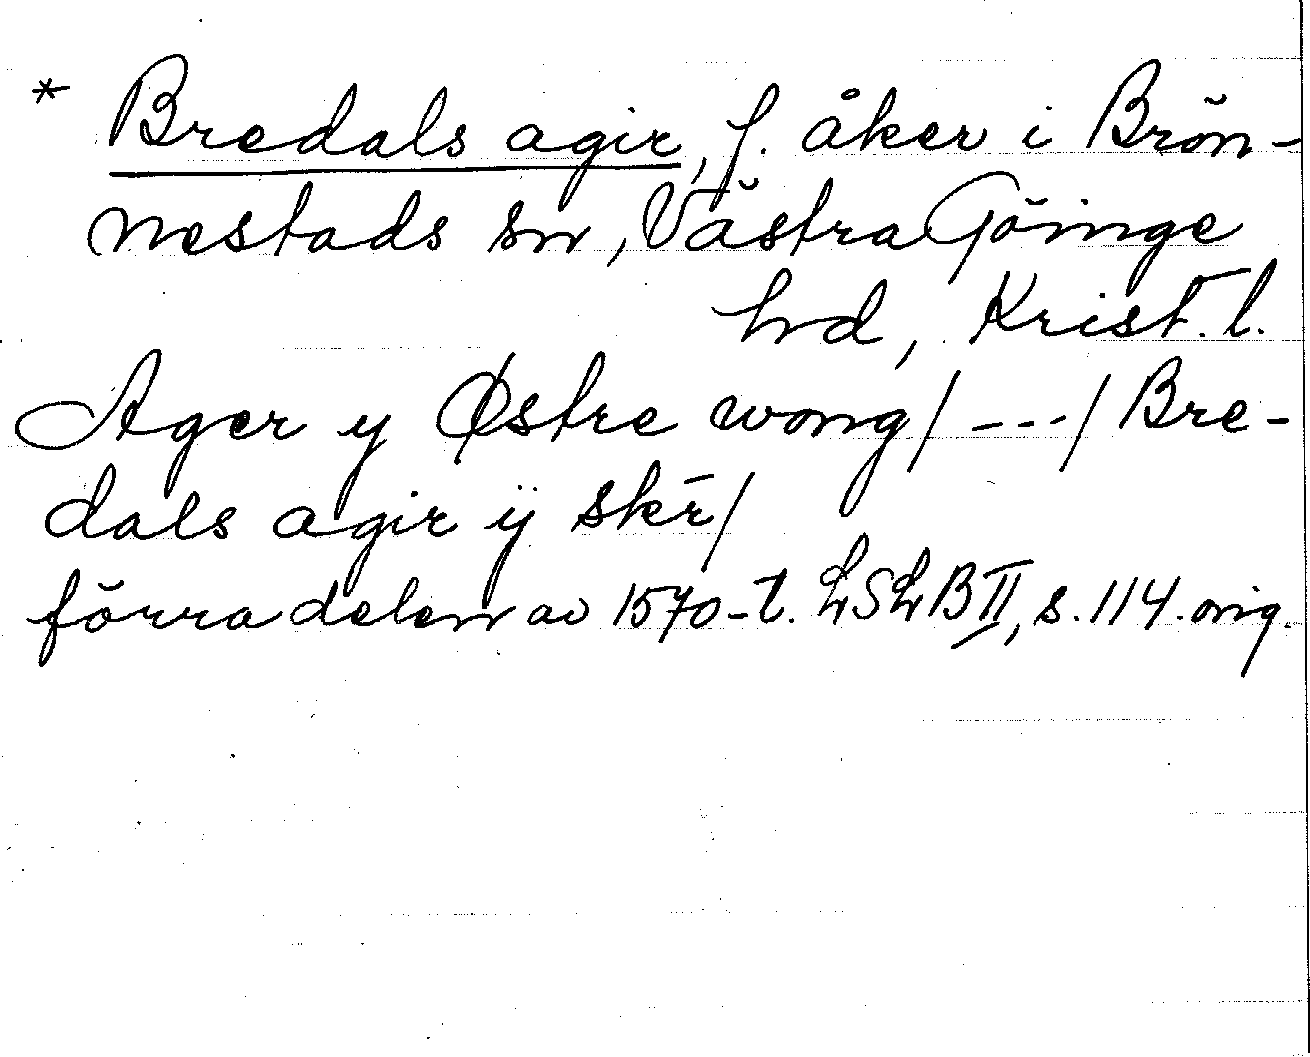 * Bredals agir, f. åker i Brön-
nestads sn, Västra Göinge
hd, Krist. l.
Ager y Østre wong/ --- / Bre-
dals agir ÿ skr̄/
förra delen av 1570-t. LSLB II, s. 114. orig.